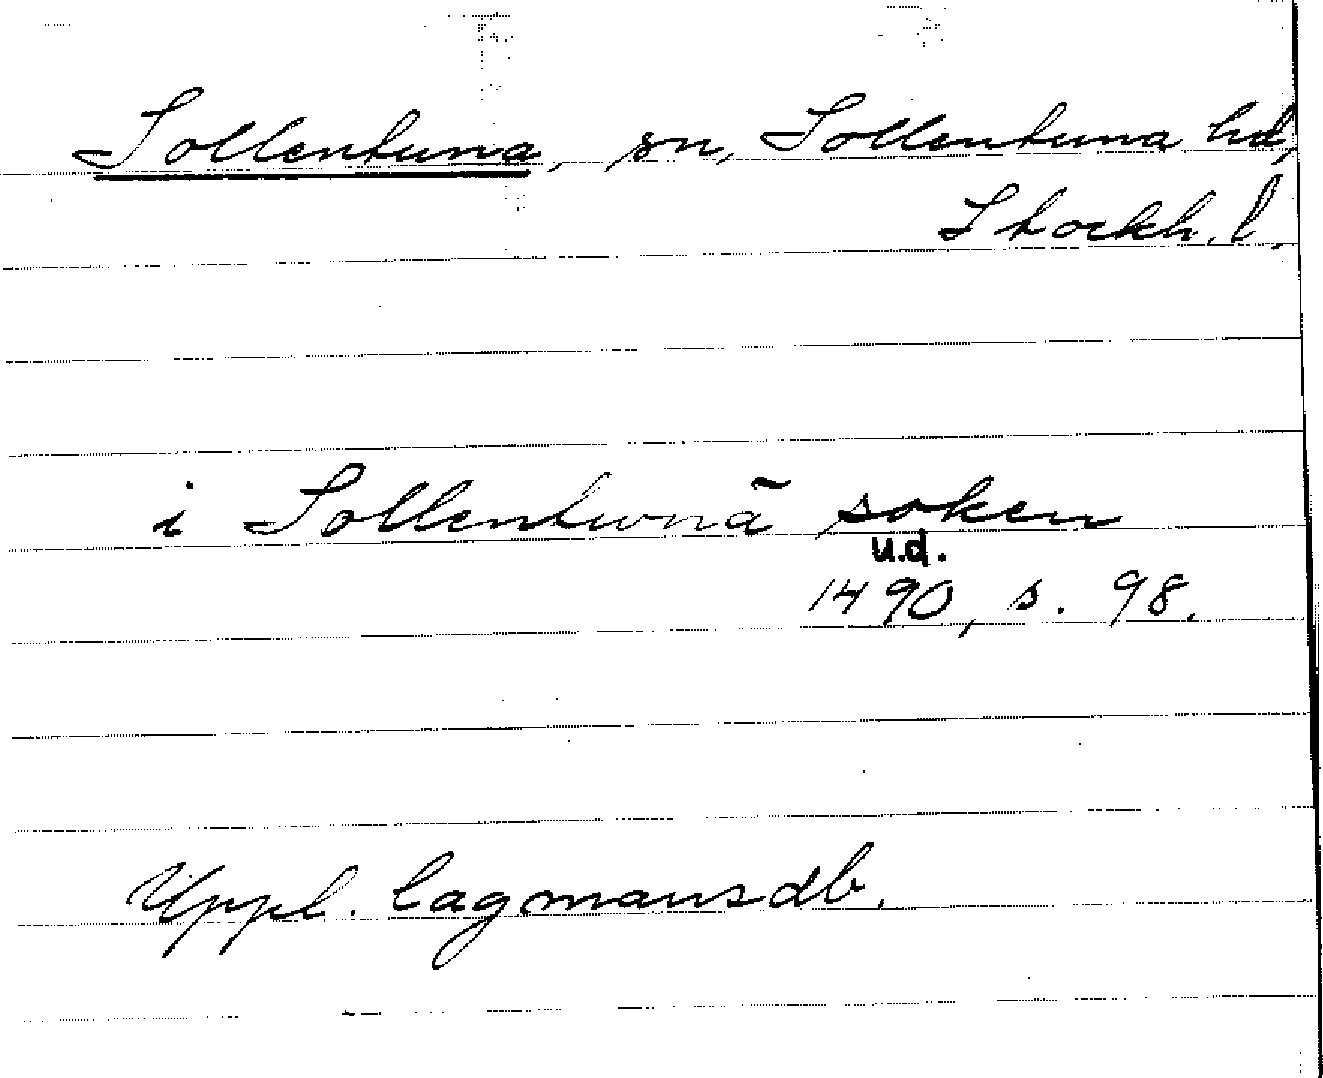 Sollentuna, sn, Sollentuna hd,
Stockh. l.
i Sollentunã soken
u.d.
1490, s. 98.
Uppl. lagmansdb.